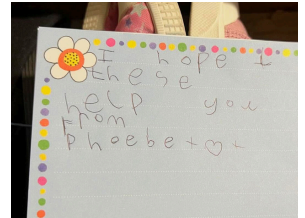 I hope t
these
help you
from
Phoebe + ♡ +